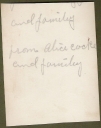 and family
from Alice Cook
and family